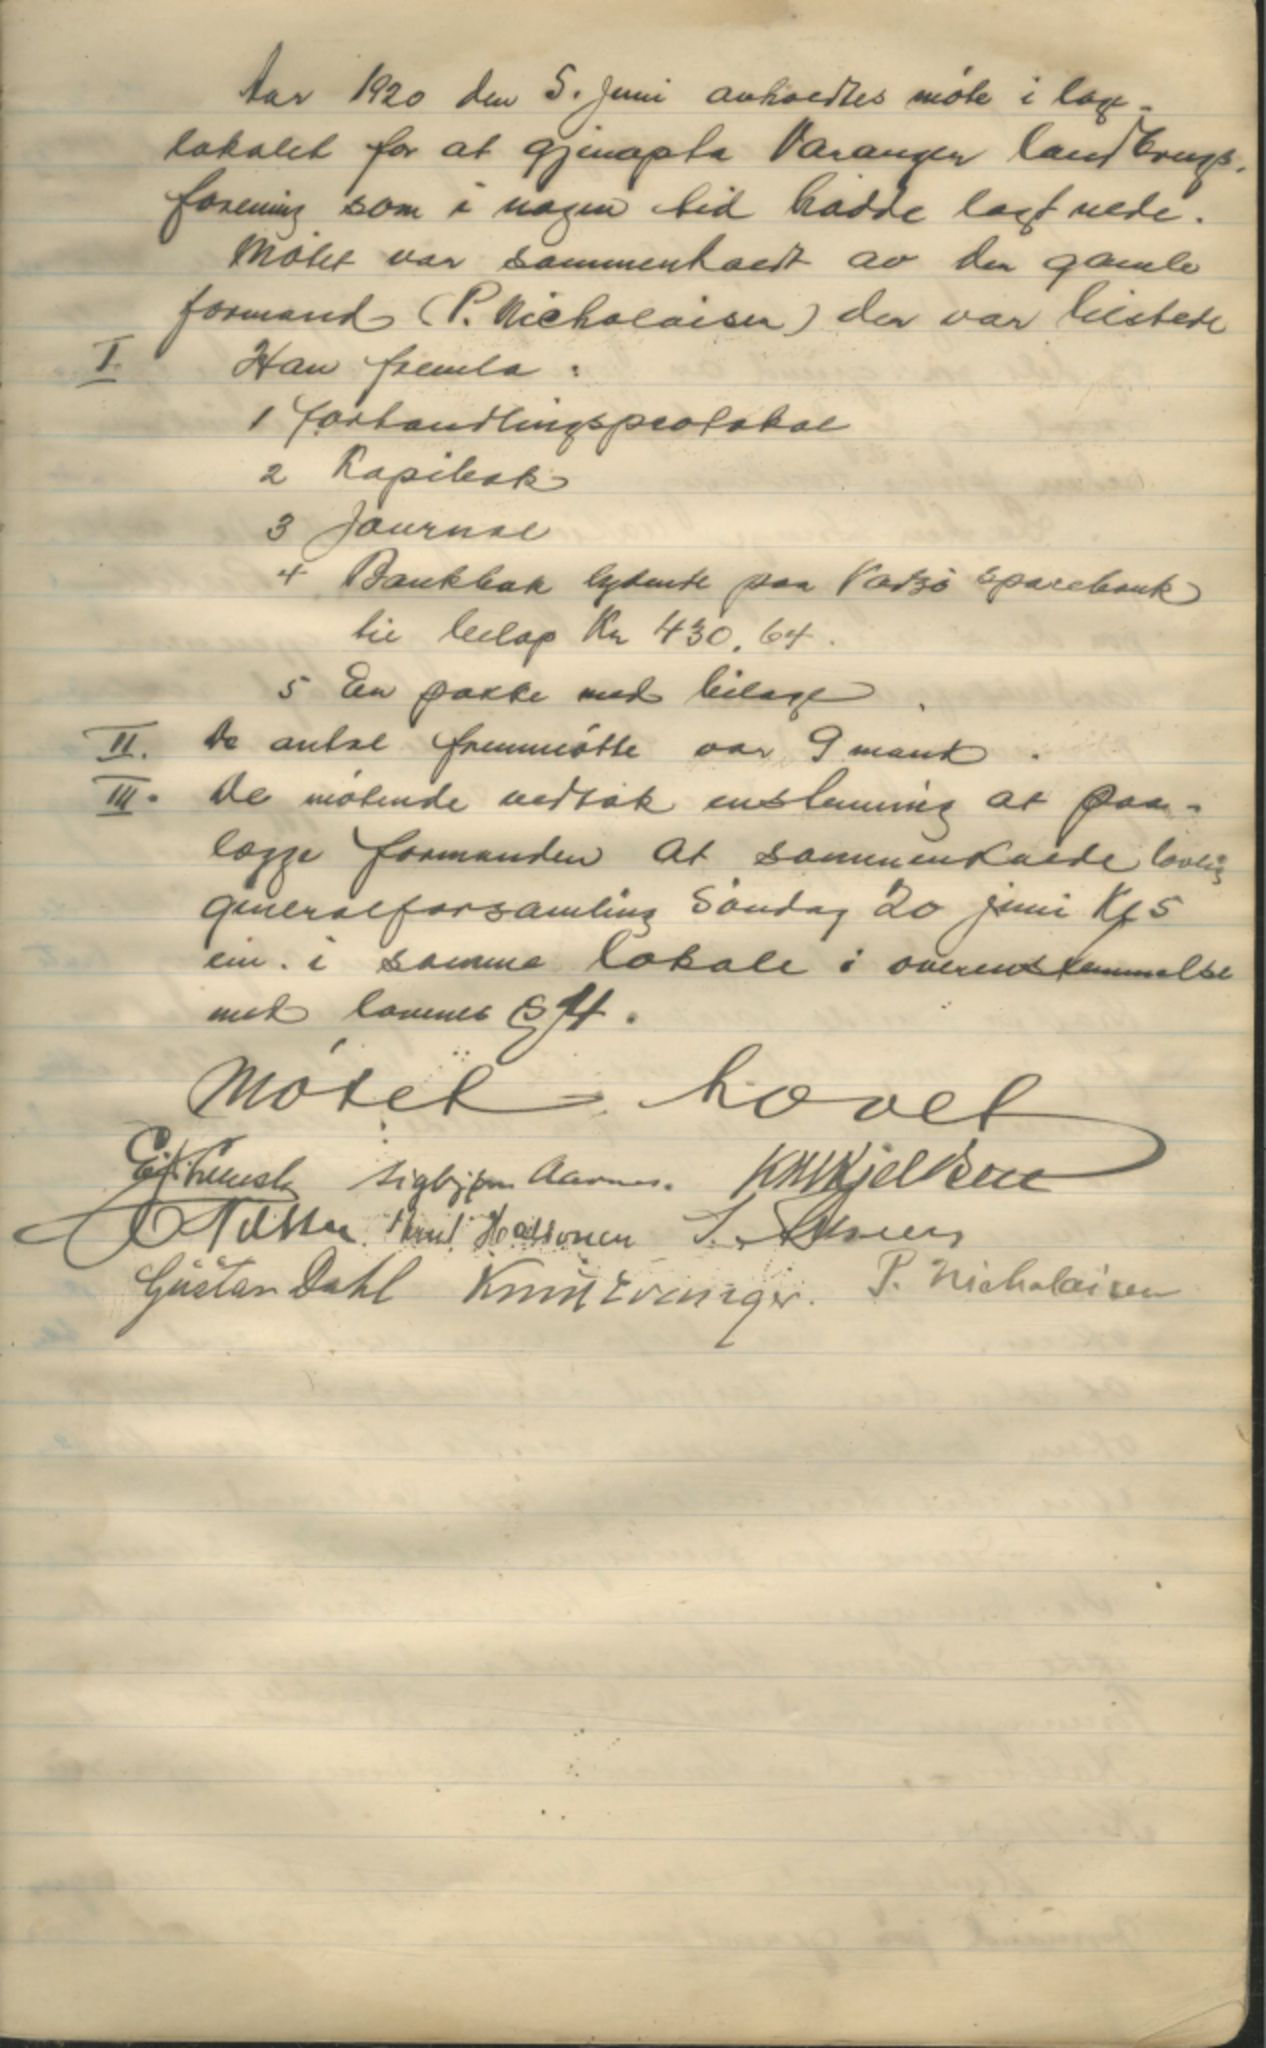 Aar 1920 den 5. juni avholdtes möte i loge-
lokalet for at gjenopta Varanger landbrugs-
forening som i nogen tid hadde lagt nede.
Mötet var sammenkaldt av den gamle
formand (P. Nicholaisen) der var tilstede
I. Han fremla:
1 forhandlingsprotokol
2 Kopibok
3 Journal
4 Bankbok lydende paa Vadsö sparebank
til belöp Kr 430,64.
5 En pakke med bilage.
II. De antal fremmötte var 9 mand.
III. De mötende vedtok enstemmig at paa-
lægge formanden at sammenkalde lovlig
generalforsamling Söndag 20 juni Kl 5
em. i samme lokale i overensstemmelse
med lovenes § 14.
Mötet hævet
Sigbjörn Aarnes. Kjeldsen
Gustav Dahl Knut P. Nicholaisen